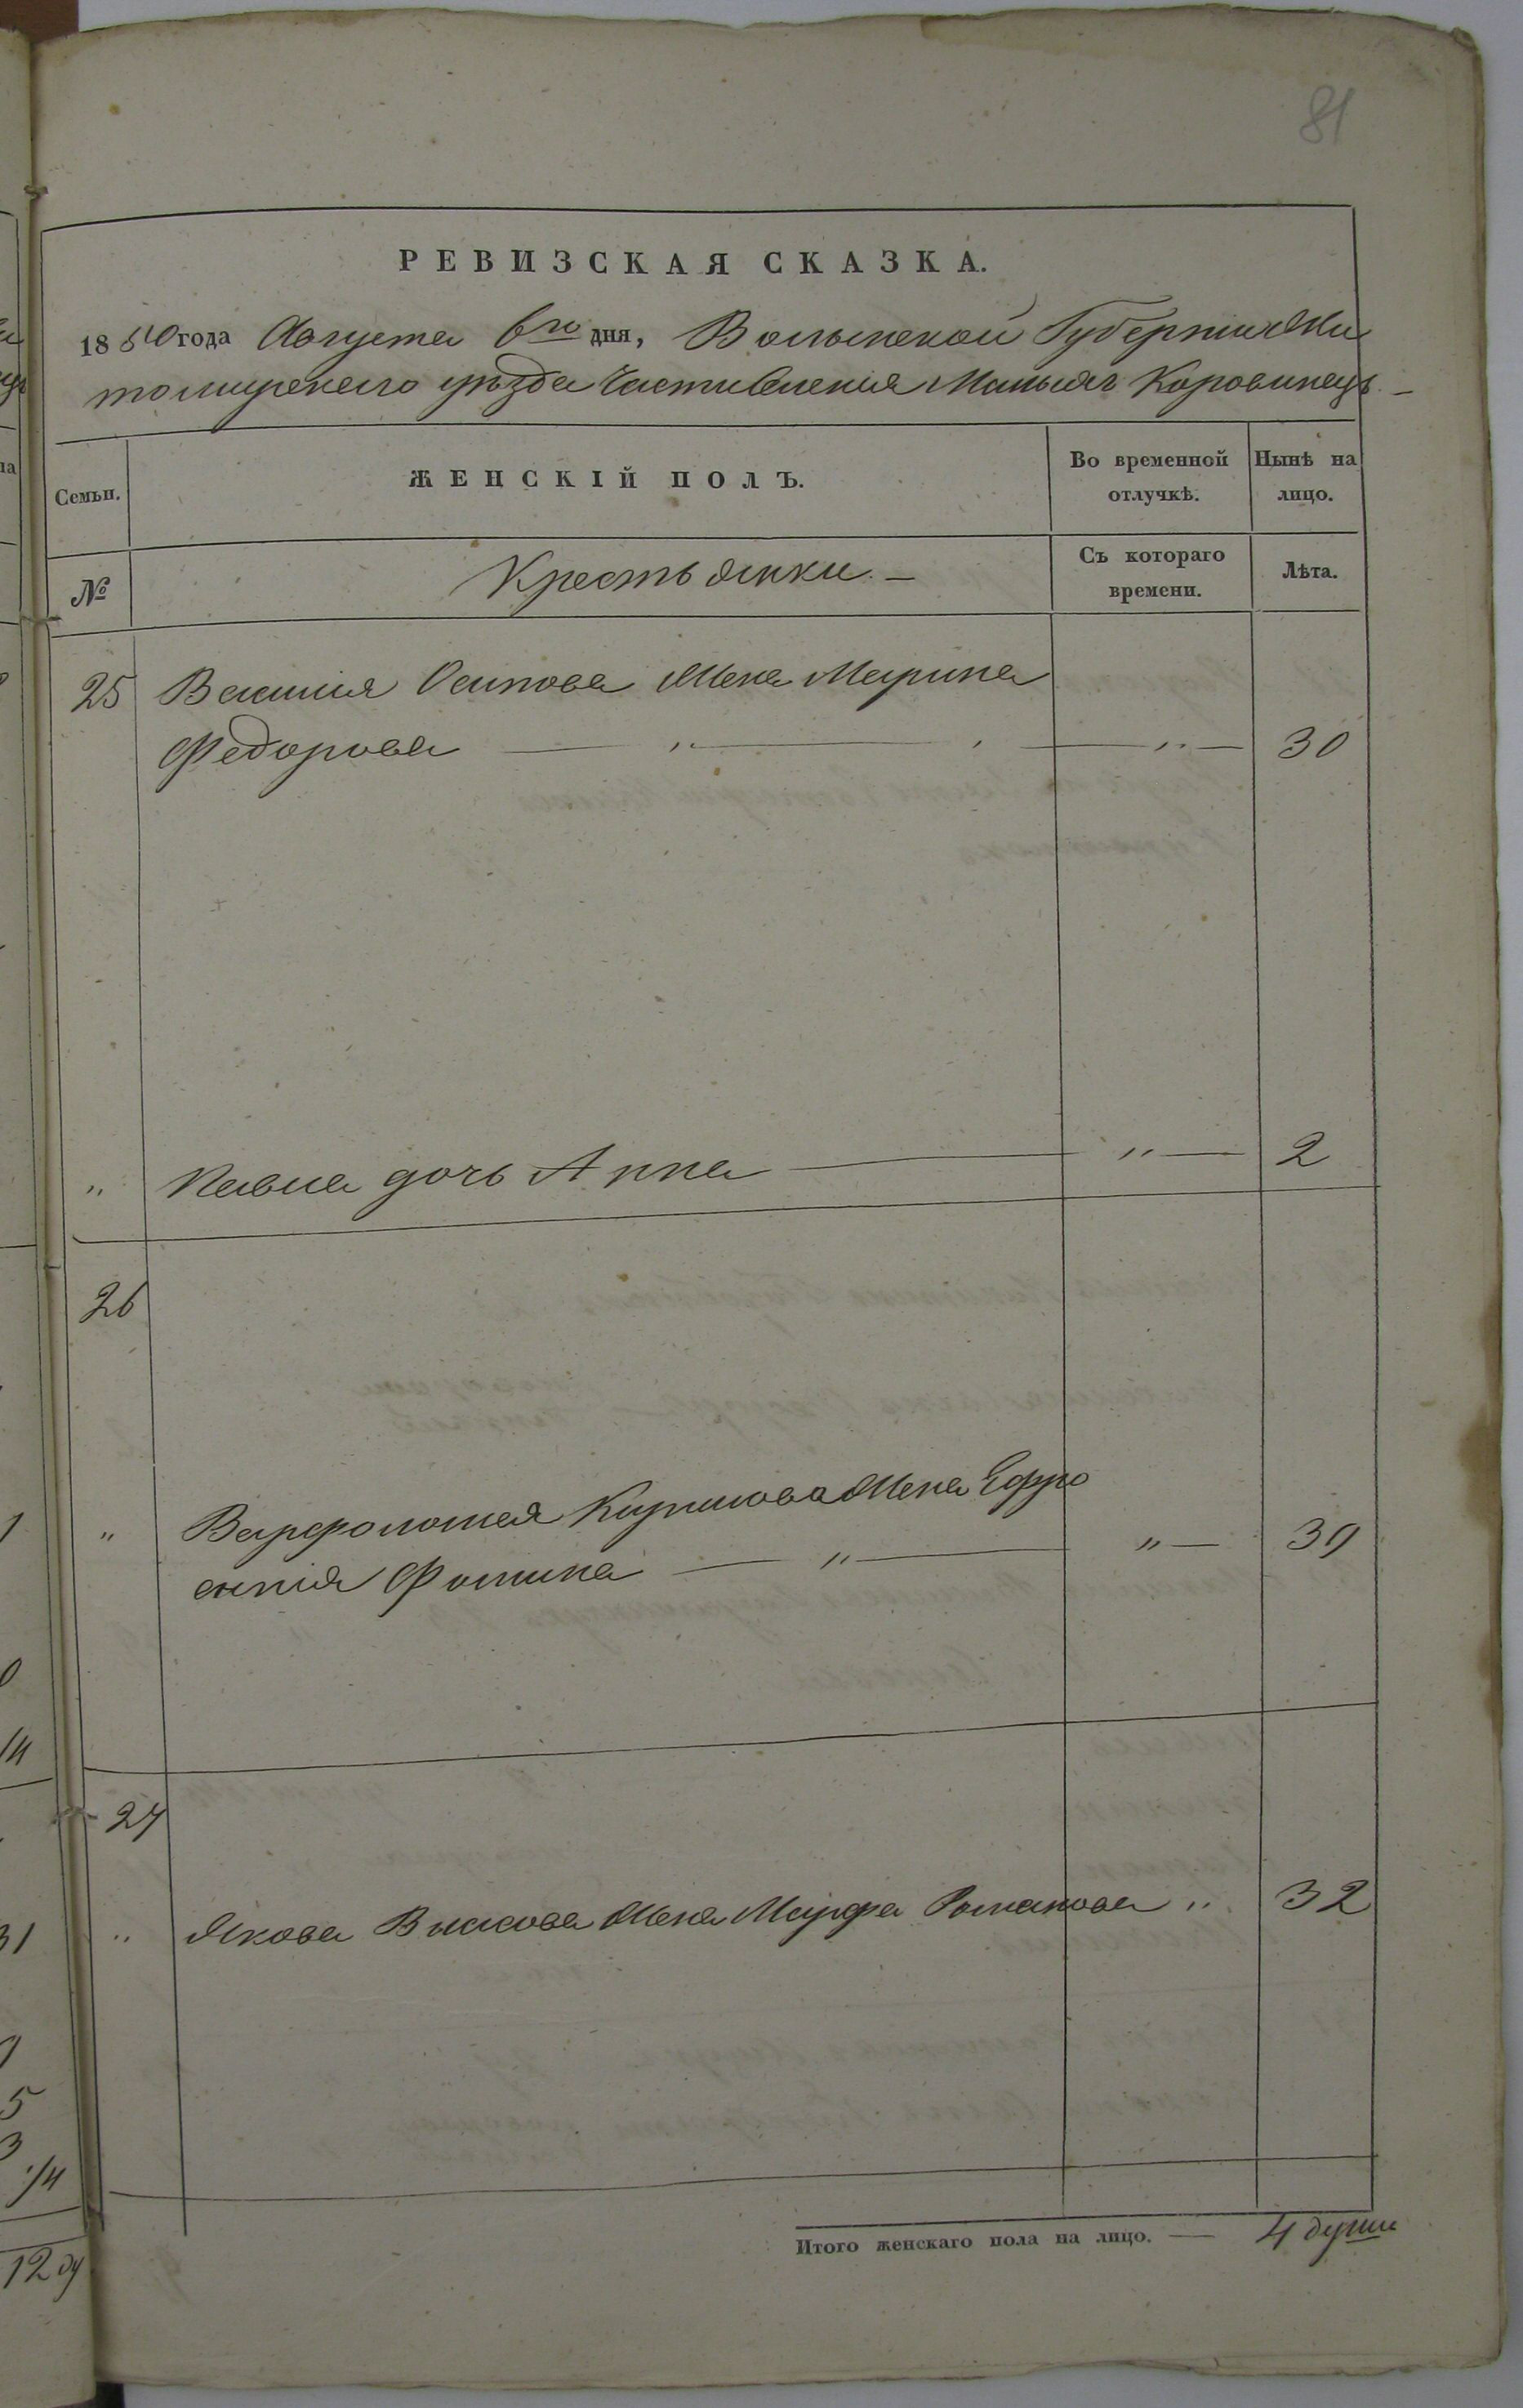 81
РЕВИЗСКАЯ СКАЗКА.
1850 года Августа 6го дня, Волынской Губернии Жи
томирскаго уѣзда части селенія Малыхъ Коровинецъ. —
Семьи.
ЖЕНСКІЙ ПОЛЪ.
Во временной отлучкѣ.
Нынѣ на лицо.
№
Крестьянки. —
Съ котораго времени.
Лѣта.
25 Василія Осипова Жена Марина
Федорова — " — " — 30
" Павла дочь Анна — " — 2
26
" Варфоломея Кирилова Жена Ефро
синія Фомина — " — " — 39
27
" Якова Власова Жена Марфа Романова " 32
Итого женскаго пола на лицо. — 4 души
1
0
14
31
5
3
14
12 ду